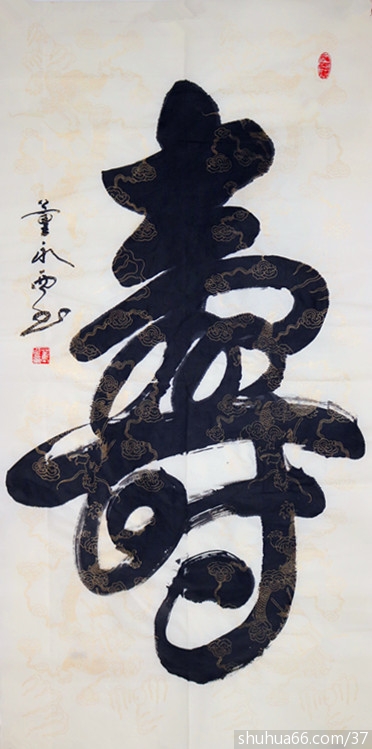 壽
董永 书
shuhua66.com/37